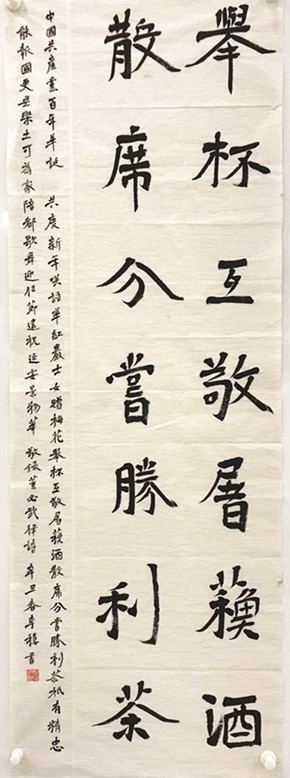 舉杯互敬屠蘓酒
散席分嘗勝利茶
中國共產黨百年華誕 共度新年笑語華紅巖士女贈梅花舉杯互敬屠蘓酒散席分嘗勝利茶祇有精忠
能報國更無樂土可為家陪都歌舞迎佳節遙祝延安景物華 敬錄董必武律詩 辛丑春李書